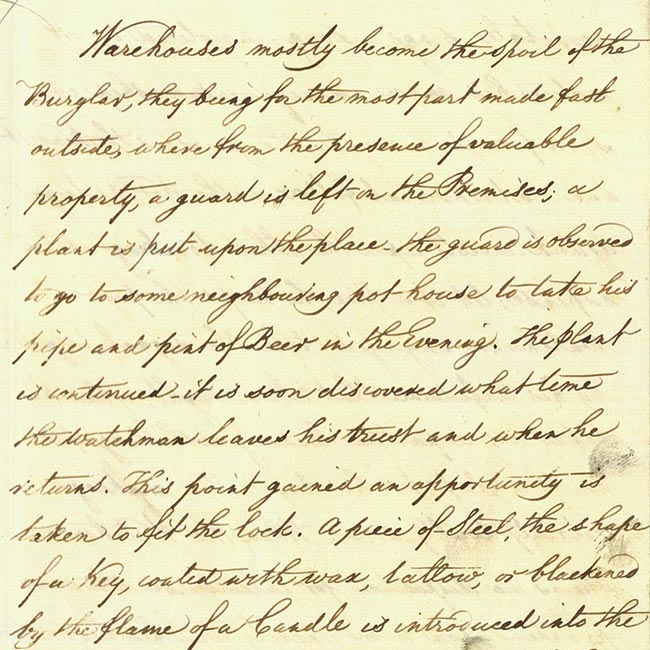 Warehouses mostly become the spoil of the
Burglar, they being for the most part made fast
outside, where from the presence of valuable
property, a guard is left on the Premises; a
plant is put upon the place - the guard is observed
to go to some neighbouring pot-house to take his
pipe and pint of Beer in the Evening. The plant
is continued - it is soon discovered what time
the watchman leaves his trust and when he
returns. This point gained an opportunity is
taken to fit the lock. A piece of Steel, the shape
of a Key, coated with wax, tallow, or blackened
by the flame of a Candle is introduced into the